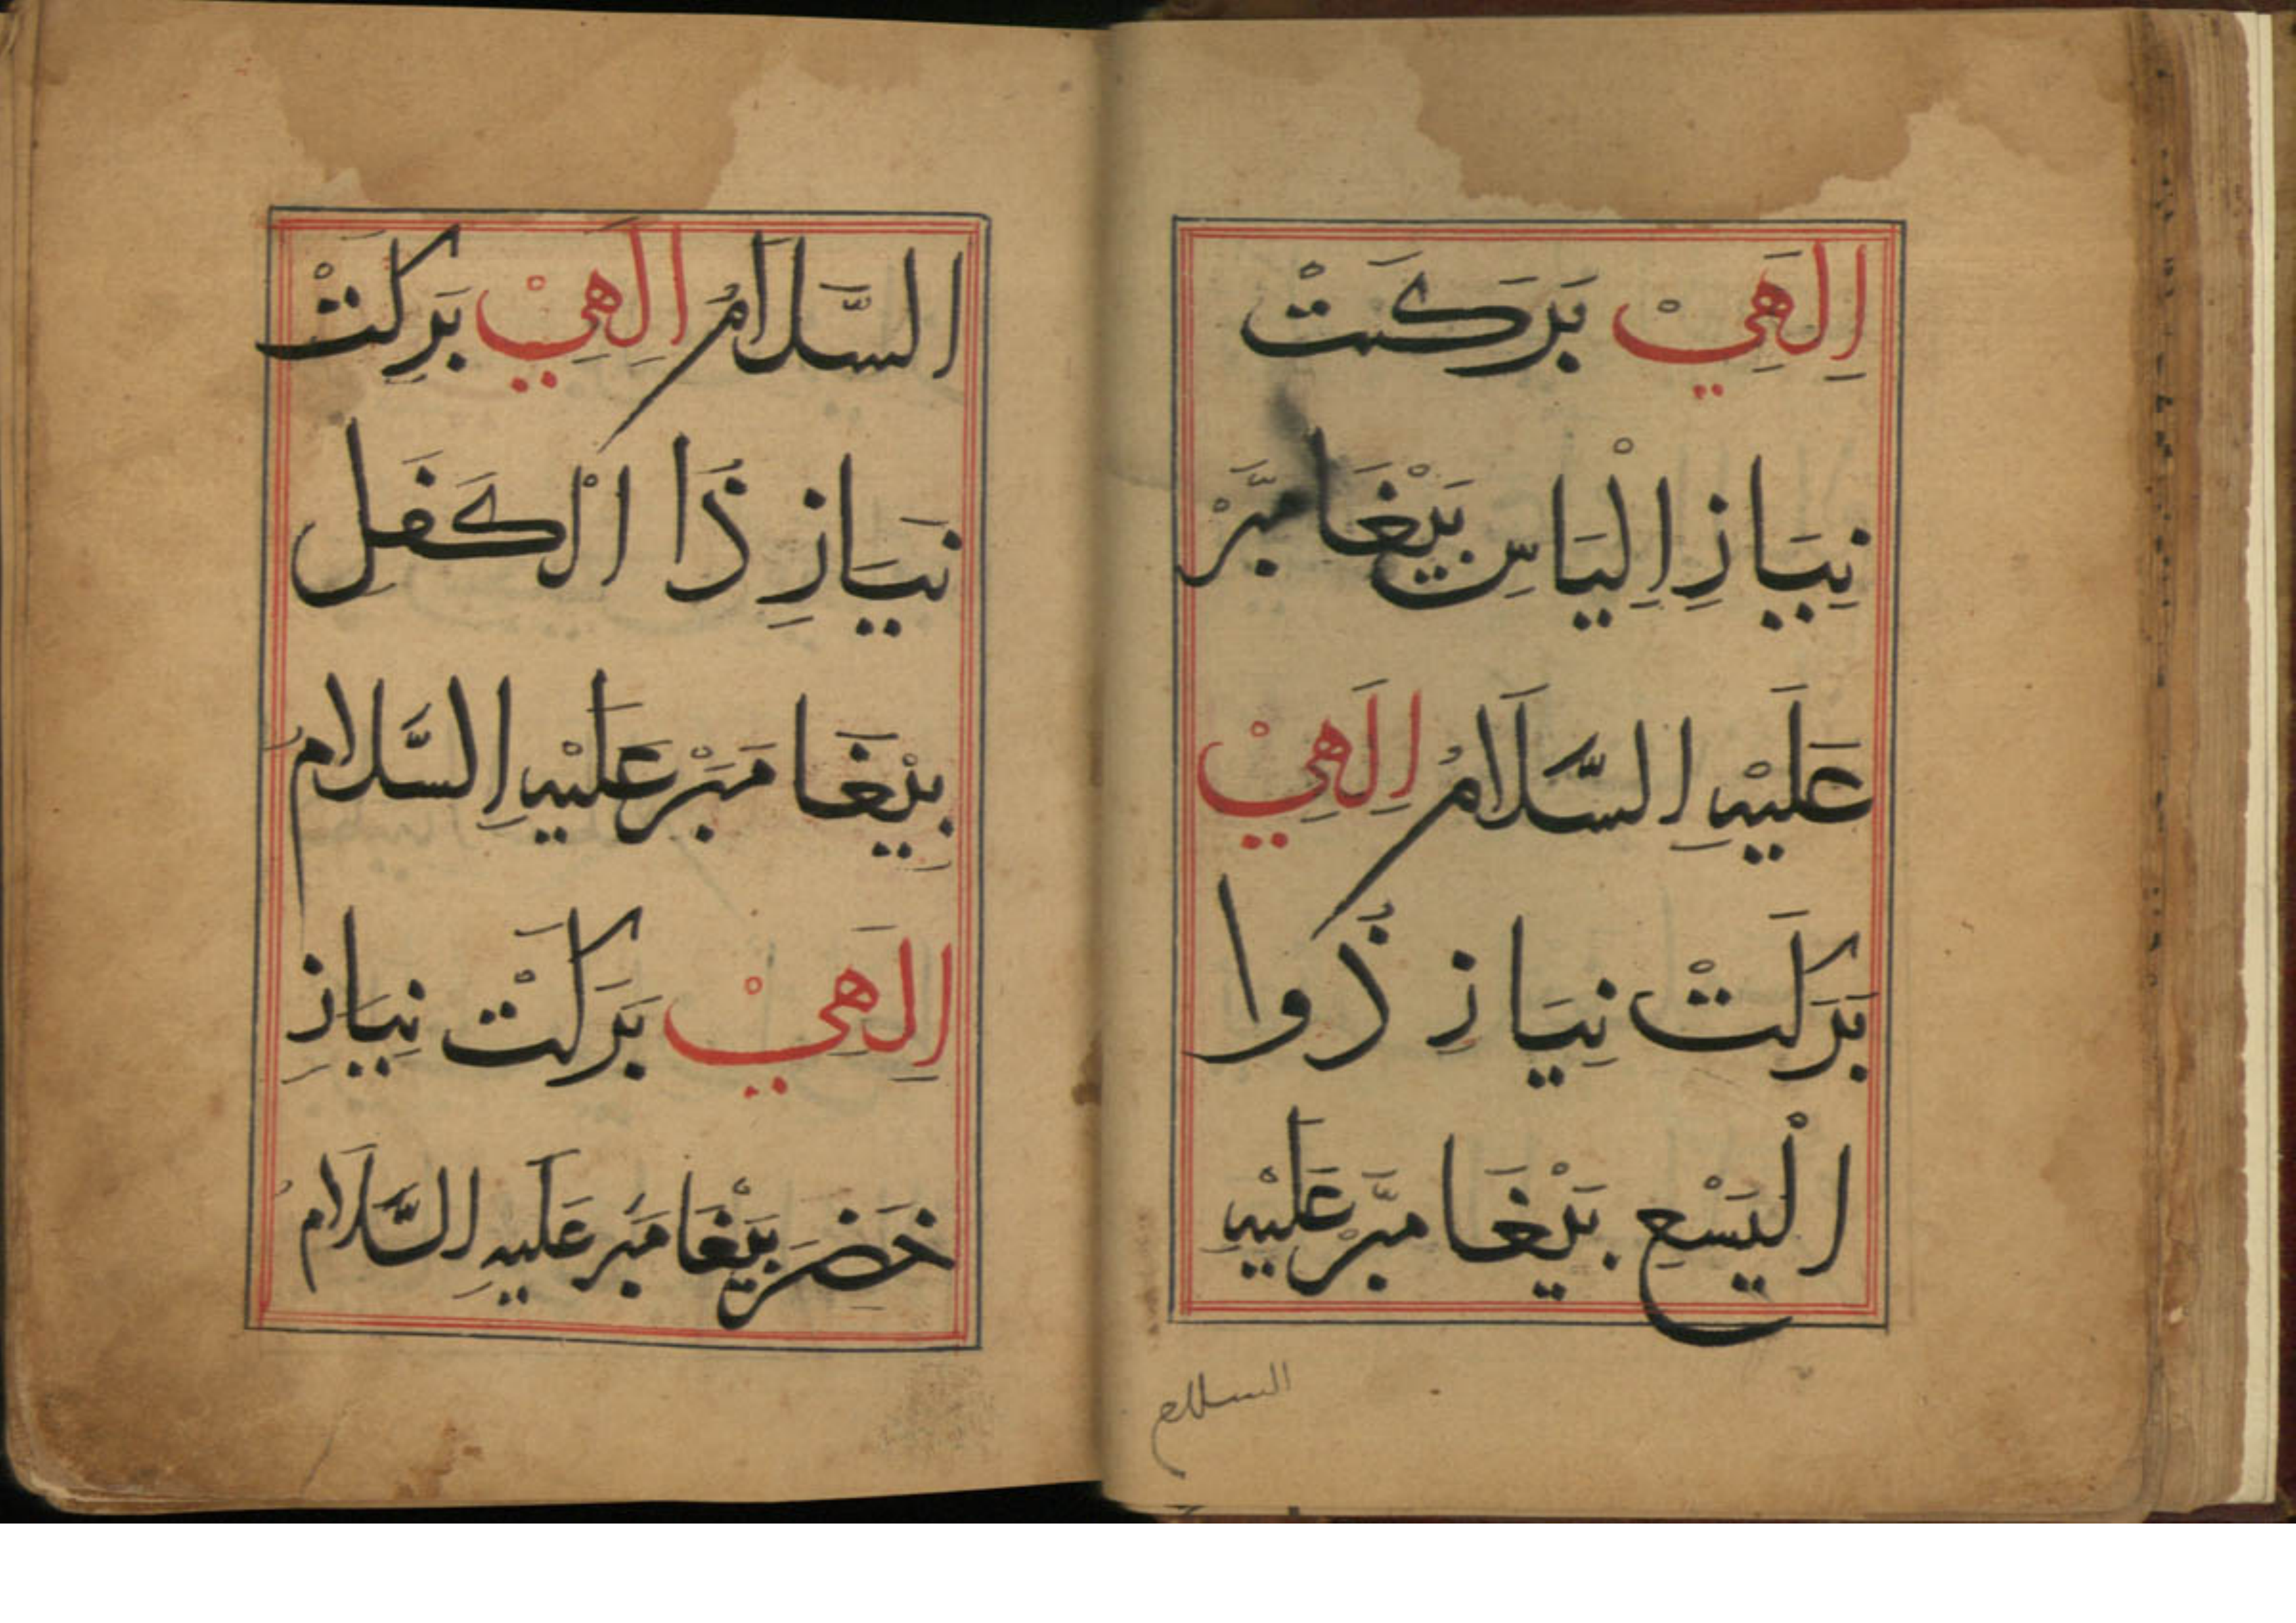 اِلٰهِيْ بَرَكَتْ
نِيَازِ اِلْيَاسِ بَيْغَامبَّرْ
عَلَيْهِ السَّلَامُ اِلٰهِيْ
بَرَكَتْ نِيَازِ ذُوا
الْيَسْعِ بَيْغَامبَّرْ عَلَيْهِ
السلام
السَّلَامُ اِلٰهِيْ بَرِكَتْ
نيَازِ ذُا الْكَفِل
بِيْغَامَبْر عَلَيْهِ السَّلَامُ
اِلٰهِيْ بَرَكَتْ نِيَازِ
خَضِرَ بَيْغَامبَر عَلَيهِ السَّلَامُ